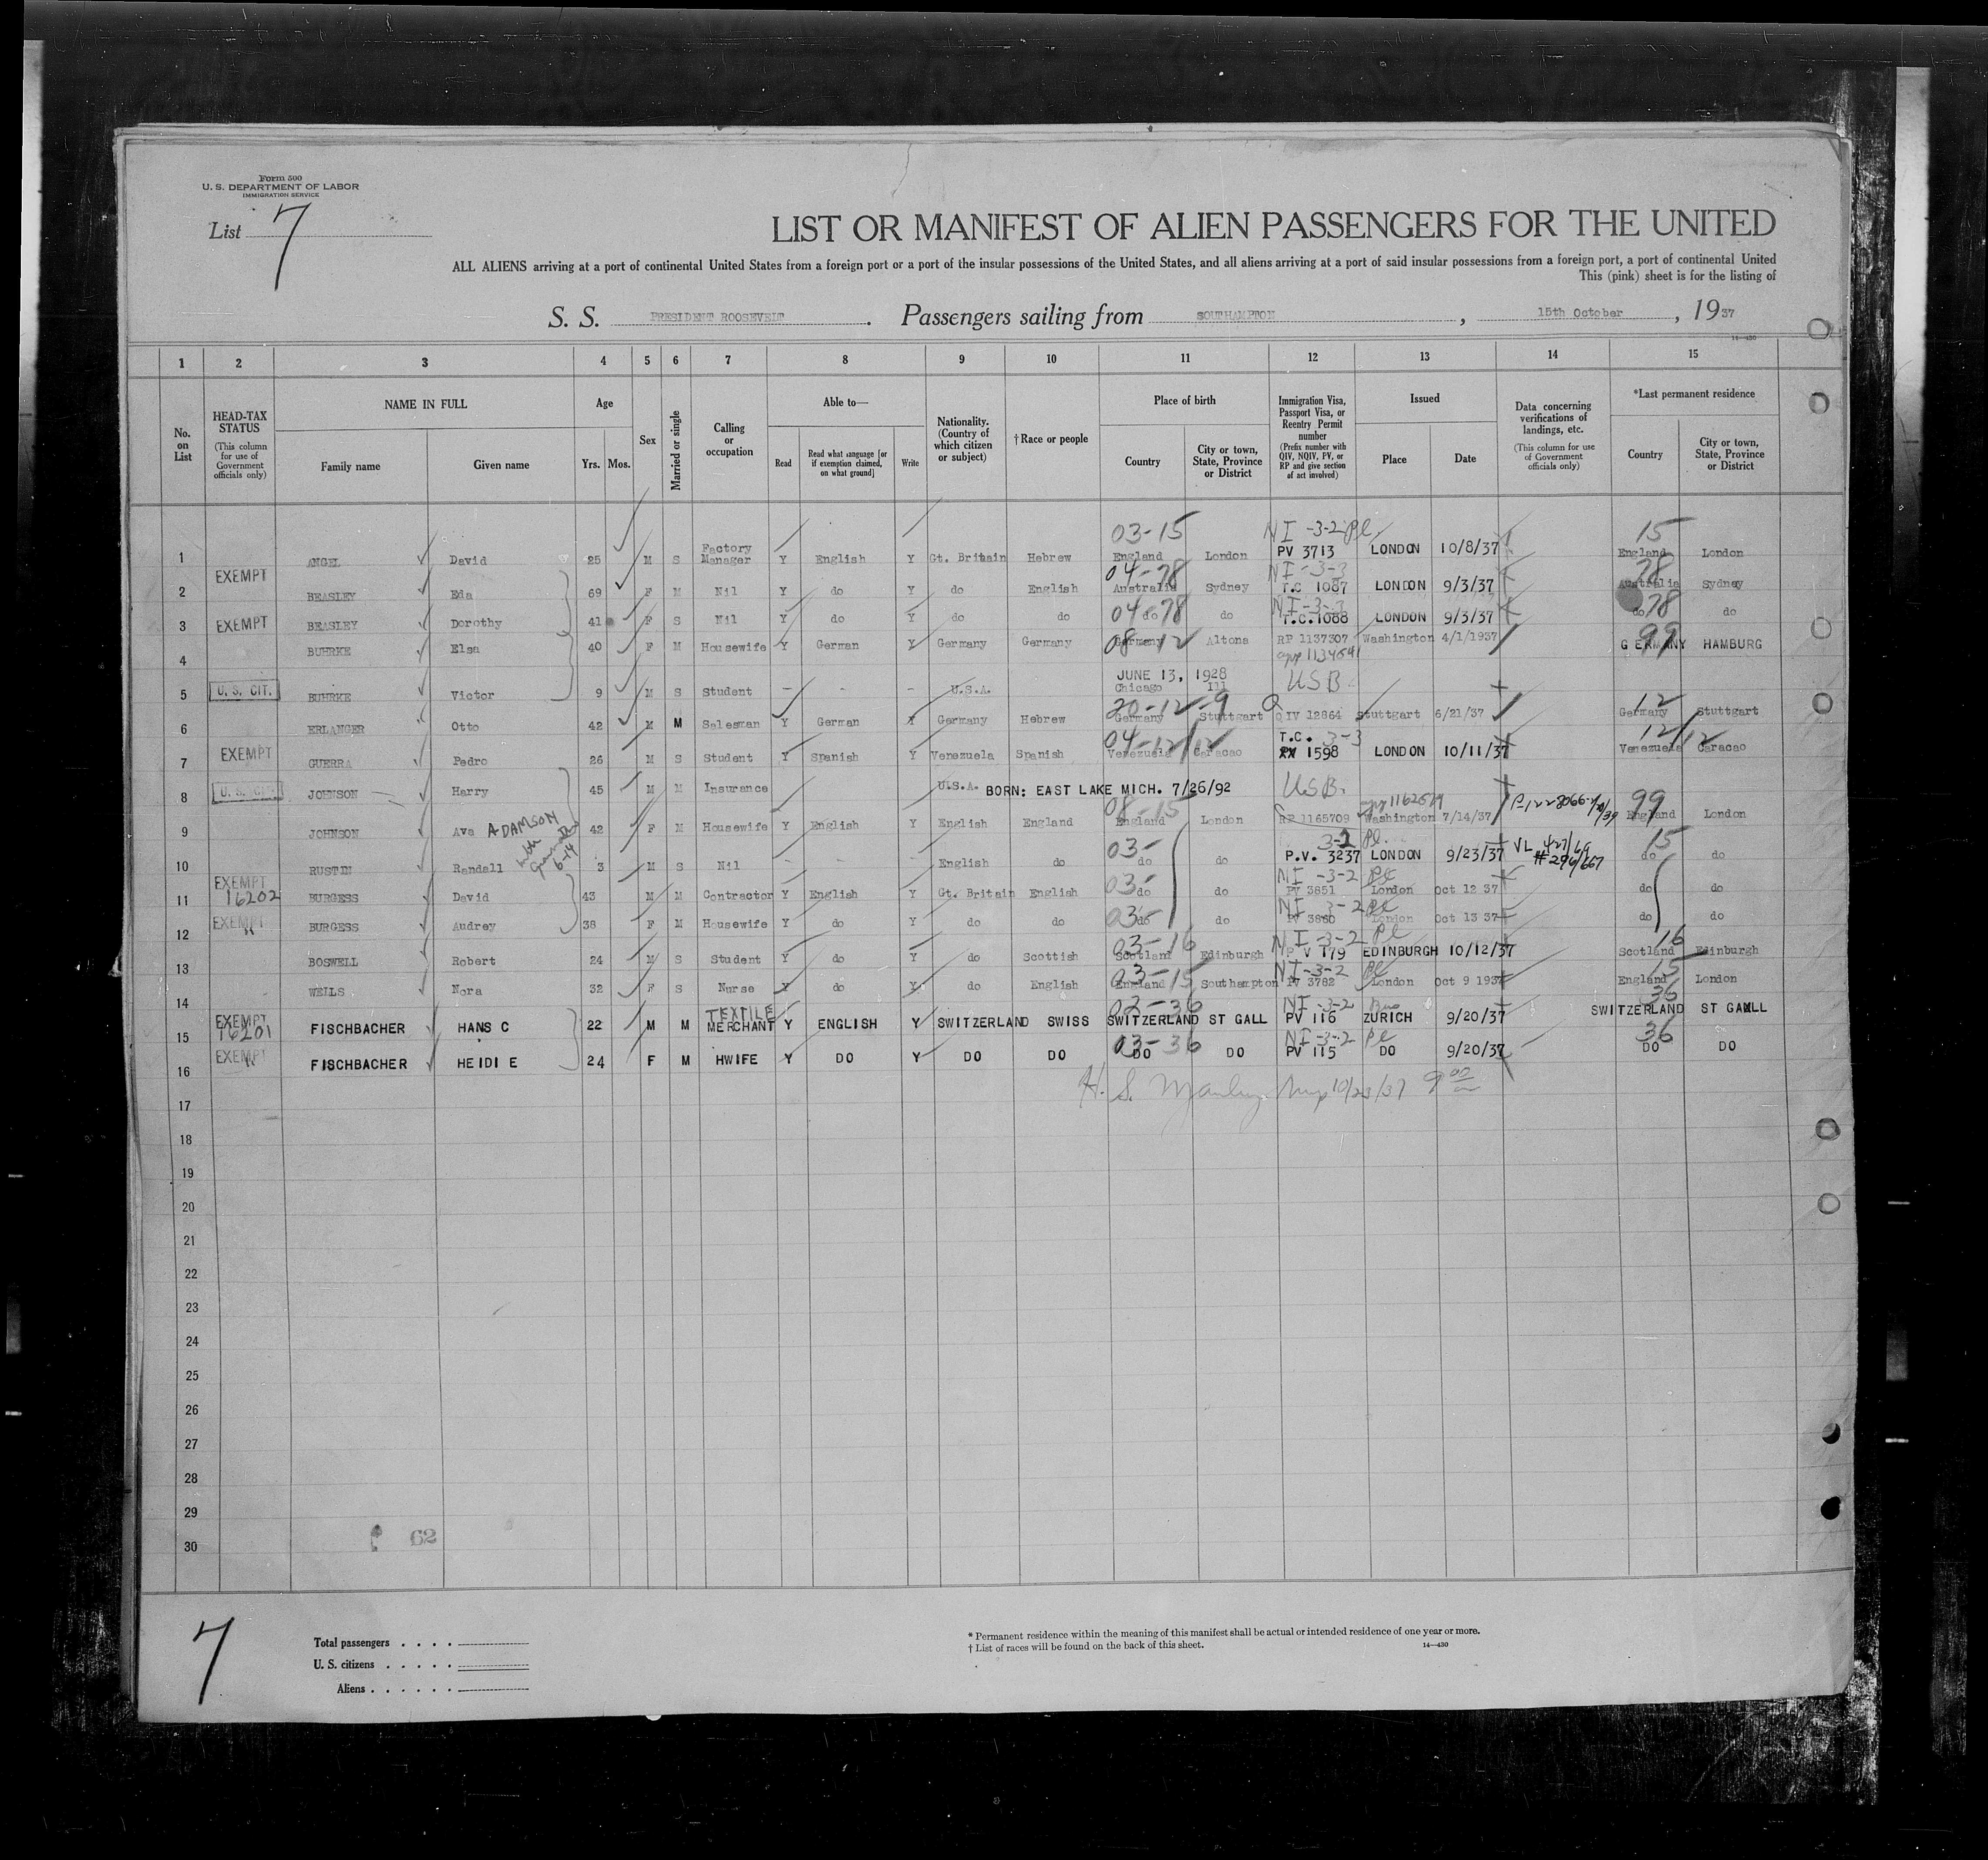 Form 500
U. S. DEPARTMENT OF LABOR
IMMIGRATION SERVICE
List 7
LIST OR MANIFEST OF ALIEN PASSENGERS FOR THE UNITED
ALL ALIENS arriving at a port of continental United States from a foreign port or a port of the insular possessions of the United States, and all aliens arriving at a port of said insular possessions from a foreign port, a port of continental United
This (pink) sheet is for the listing of
S. S. PRESIDENT ROOSEVELT. Passengers sailing from SOUTHAMPTON, 15th October, 1937
14—430
1 2 3 4 5 6 7 8 9 10 11 12 13 14 15
No. on List
HEAD-TAX STATUS (This column for use of Government officials only)
NAME IN FULL
Family name Given name
Age
Yrs. Mos.
Sex
Married or single
Calling or occupation
Able to—
Read Read what language [or if exemption claimed, on what ground] Write
Nationality. (Country of which citizen or subject)
†Race or people
Place of birth
Country City or town, State, Province or District
Immigration Visa, Passport Visa, or Reentry Permit number (Prefix number with QIV, NQIV, PV, or RP and give section of act involved)
Issued
Place Date
Data concerning verifications of landings, etc. (This column for use of Government officials only)
*Last permanent residence
Country City or town, State, Province or District
03-15 NI -3-2 Pl 15
1 ANGEL David 25 M S Factory Manager Y English Y Gt. Britain Hebrew England London PV 3713 LONDON 10/8/37 England London
04-78 NI-3-3 78
2 EXEMPT BEASLEY Eda 69 F M Nil Y do Y do English Australia Sydney T.C 1087 LONDON 9/3/37 Australia Sydney
04 78 NI-3-3 78
3 EXEMPT BEASLEY Dorothy 41 F S Nil Y do Y do do do do T.C.1088 LONDON 9/3/37 do do
08-12 99
4 BUHRKE Elsa 40 F M Housewife Y German Y Germany Germany Germany Altona RP 1137307 Washington 4/1/1937 GERMANY HAMBURG
1134541
JUNE 13, 1928
5 U. S. CIT. BUHRKE Victor 9 M S Student - - - U.S.A. Chicago Ill USB
20-12-9 12
6 ERLANGER Otto 42 M M Salesman Y German Y Germany Hebrew Germany Stuttgart QIV 12864 Stuttgart 6/21/37 Germany Stuttgart
04-12/12 T.C. 3-3 12/12
7 EXEMPT GUERRA Pedro 26 M S Student Y Spanish Y Venezuela Spanish Venezuela Caracao 1598 LONDON 10/11/37 Venezuela Caracao
8 U. S. CIT. JOHNSON Harry 45 M M Insurance U.S.A. BORN: EAST LAKE MICH. 7/26/92 USB
08-15 99
9 JOHNSON Ava ADAMSON 42 F M Housewife Y English Y English England England London RP 1165709 Washington 7/14/37 England London
03- 3-2 Pl. 15
10 RUSTIN Randall 3 M S Nil - - - English do do do P.V. 3237 LONDON 9/23/37 VL 427/69 #296/667 do do
03- NI -3-2 Pl
11 EXEMPT 16202 BURGESS David 43 M M Contractor Y English Y Gt. Britain English do do PV 3851 London Oct 12 37 do do
03- NI 3-2 Pl
12 EXEMPT " BURGESS Audrey 38 F M Housewife Y do Y do do do do PV 3860 London Oct 13 37 do do
03-16 NI-3-2 Pl 16
13 BOSWELL Robert 24 M S Student Y do Y do Scottish Scotland Edinburgh P V 179 EDINBURGH 10/12/37 Scotland Edinburgh
03-15 NI-3-2 Pl 15
14 WELLS Nora 32 F S Nurse Y do Y do English England Southampton PV 3782 London Oct 9 1937 England London
03-36 NI-3-2 36
15 EXEMPT 16201 FISCHBACHER HANS C 22 M M TEXTILE MERCHANT Y ENGLISH Y SWITZERLAND SWISS SWITZERLAND ST GALL PV 116 ZURICH 9/20/37 SWITZERLAND ST GALL
03-36 NI-3-2 Pl 36
16 EXEMPT " FISCHBACHER HEIDI E 24 F M HWIFE Y DO Y DO DO DO DO PV 115 DO 9/20/37 DO DO
H. S. 10/23/37 9 00
17
18
19
20
21
22
23
24
25
26
27
28
29
30
62
7
Total passengers . . . .
U. S. citizens . . . . .
Aliens . . . . . .
* Permanent residence within the meaning of this manifest shall be actual or intended residence of one year or more.
† List of races will be found on the back of this sheet. 14—430